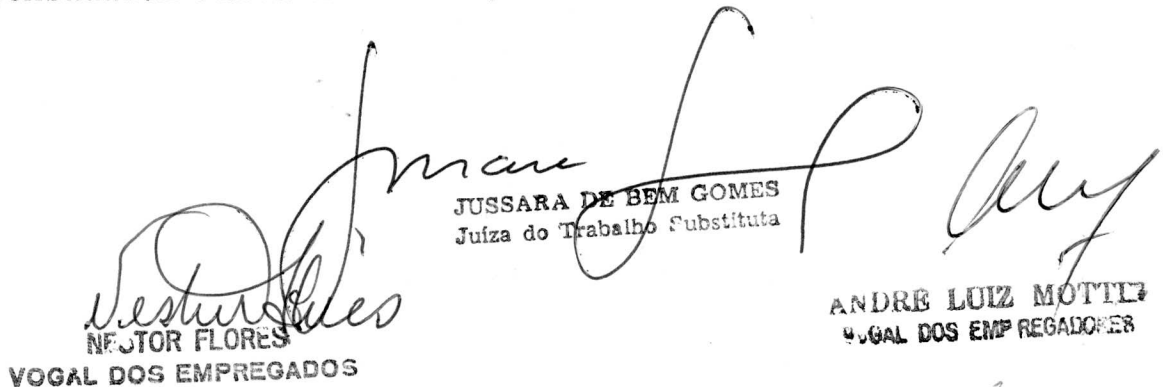 JUSSARA DE BEM GOMES
Juíza do Trabalho Substituta
Nestor Flores
NESTOR FLORES
VOGAL DOS EMPREGADOS
ANDRÉ LUIZ
VOGAL DOS EMPREGADORES